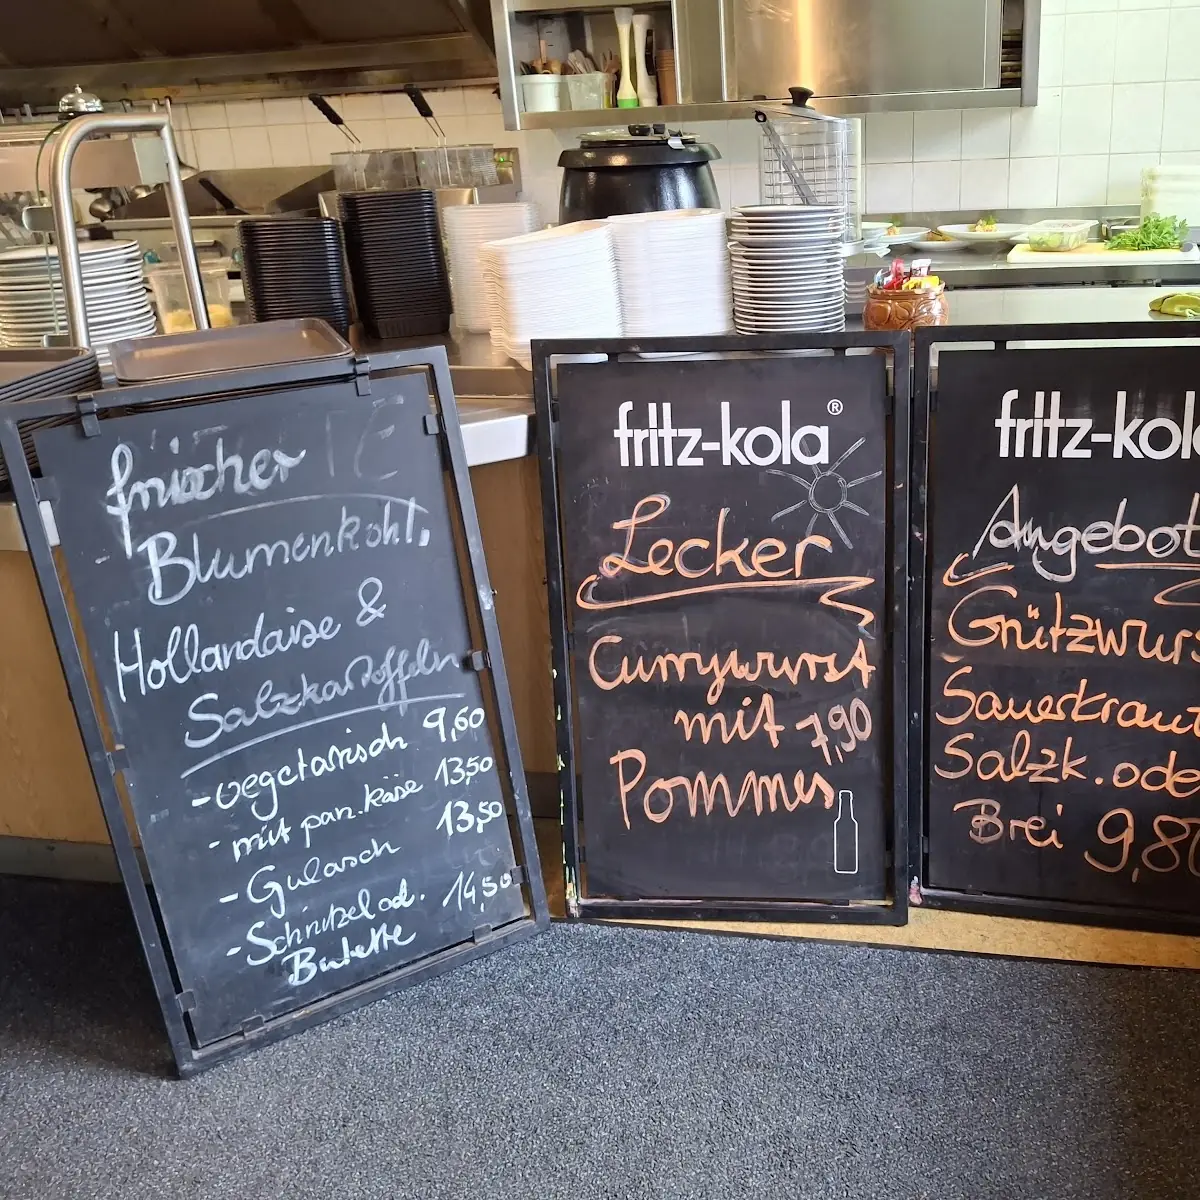 frischer
Blumenkohl,
Hollandaise &
Salzkartoffeln
- vegetarisch 9,60
- mit pan. Käse 13,50
- Gulasch 13,50
- Schnitzel od. 14,50
Bulette
fritz-kola®
Lecker
Currywurst
mit 7,90
Pommes
fritz-kola
Angebot
Grützwurs
Sauerkraut
Salzk. ode
Brei 9,80